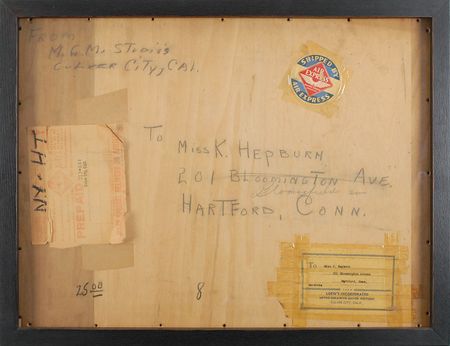 FROM
M.G.M. STUDIOS
CULVER CITY, CAL.
SHIPPED BY
AIR EXPRESS
AIR EXPRESS
NY-HT
PREPAID
TO
MISS K. HEPBURN
201 BLOOMINGTON AVE.
Bloomfield
HARTFORD, CONN.
25.00
8
To
Miss K. Hepburn
201 Bloomington Avenue
Hartford, Conn.
LOEW'S INCORPORATED
CULVER CITY, CALIF.